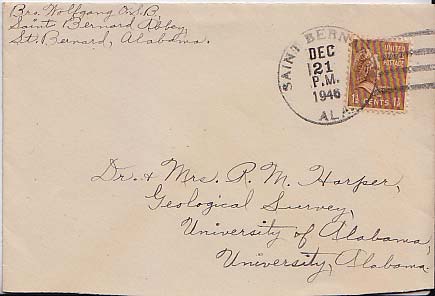 Bro. Wolfgang O.S.B.
Saint Bernard Abbey,
St. Bernard, Alabama.
SAINT BERN
DEC
21
P.M.
1946
ALA
UNITED
STATES
POSTAGE
1½ CENTS 1½
Dr. + Mrs. R. M. Harper,
Geological Survey,
University of Alabama,
University, Alabama.